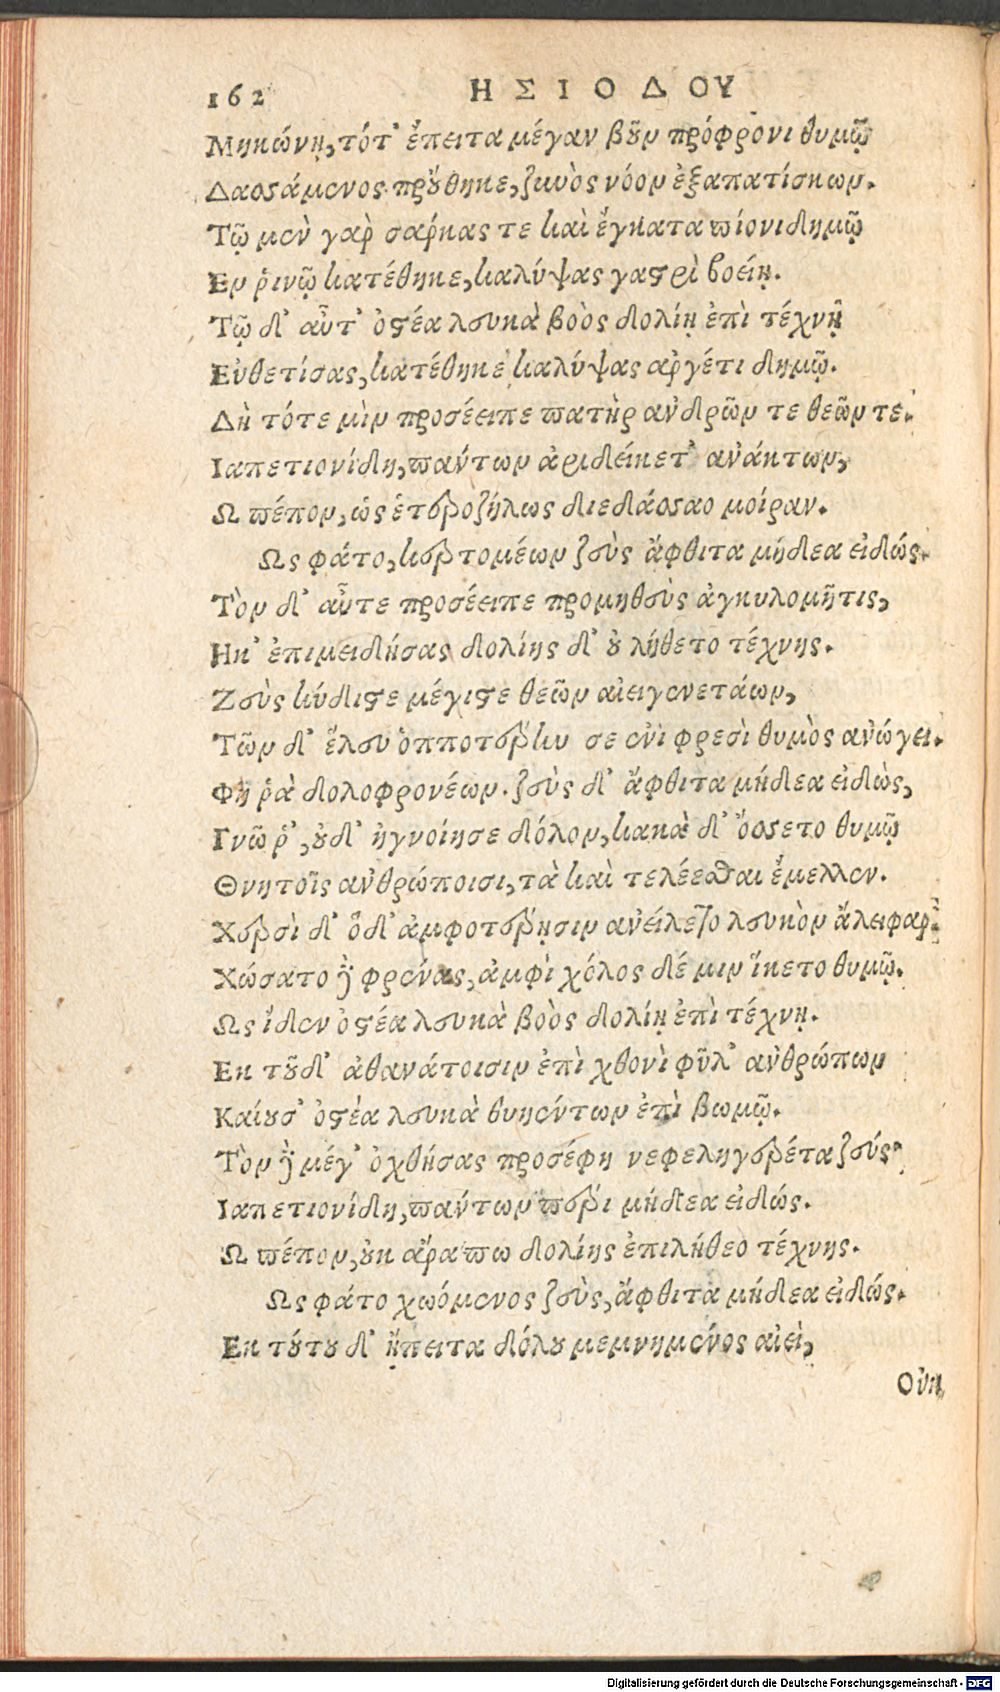 162 ΗΣΙΟΔΟΥ
Μηκώνῃ, τότ' ἔπειτα μέγαν βοῦν πρόφρονι θυμῷ
Δασσάμενος προύθηκε, ζηνὸς νόον ἐξαπατίσκων.
Τῷ μὲν γαὰρ σάρκας τε καὶ ἔγκατα πίονι δημῷ
Εν ῥινῷ κατέθηκε, καλύψας γαστρὶ βοείῃ.
Τῷ δ' αὖτ' ὀστέα λευκὰ βοὸς δολίῃ ἐπὶ τέχνῃ
Εὐθετίσας, κατέθηκε καλύψας αργέτι δημῷ.
Δὴ τότε μὶν προσέειπε πατὴρ ανδρῶν τε θεῶν τε.
Ιαπετιονίδη, πάντων ἀριδείκετ' ανάκτων,
Ω πέπον, ὡς ἑτεροζήλως διεδάσσαο μοίραν.
Ως φάτο, κερτομέων ζεὺς ἄφθιτα μήδεα εἰδώς.
Τὸν δ' αὖτε προσέειπε προμηθεὺς ἀγκυλομῆτις,
Ηκ' ἐπιμειδήσας δολίης δ' οὐ λήθετο τέχνης.
Ζεὺς κύδιστε μέγιστε θεῶν αἰειγενετάων,
Τῶν δ' ἕλευ ὁπποτέρην σε ἐνὶ φρεσὶ θυμὸς ανώγει.
Φη ῥὰ δολοφρονέων. ζεὺς δ' ἄφθιτα μήδεα εἰδὼς,
Γνῶ ῥ', οὐδ' ἠγνοίησε δόλον, κακὰ δ' ὄσσετο θυμῷ
Θνητοῖς ανθρώποισι, τὰ καὶ τελέεσθαι ἔμελλεν.
Χερσὶ δ' ὅδ' ἀμφοτέρῃσιν ανείλετο λευκὸν ἄλειφαρ.
Χώσατο δὲ φρένας, ἀμφὶ χόλος δέ μιν ἵκετο θυμῷ.
Ως ἴδεν ὀστέα λευκὰ βοὸς δολίῃ ἐπὶ τέχνῃ.
Εκ τοῦδ' ἀθανάτοισιν ἐπὶ χθονὶ φῦλ' ανθρώπων
Καίουσ' ὀστέα λευκὰ θυηέντων ἐπὶ βωμῷ.
Τὸν δὲ μέγ' ὀχθήσας προσέφη νεφεληγερέτα ζεύς,
Ιαπετιονίδη, πάντων πέρι μήδεα εἰδώς.
Ω πέπον, οὐκ ἄρα πω δολίης ἐπιλήθεο τέχνης.
Ως φάτο χωόμενος ζεὺς, ἄφθιτα μήδεα εἰδώς.
Εκ τούτου δ' ἤπειτα δόλου μεμνημένος αἰεὶ,
Οὐκ
Digitalisierung gefördert durch die Deutsche Forschungsgemeinschaft - DFG